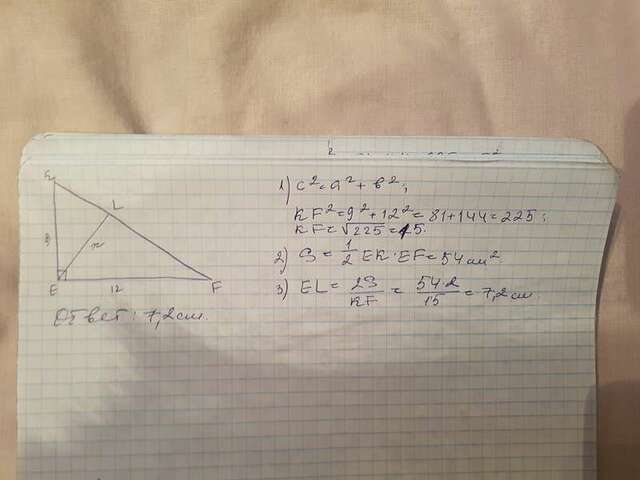 K
L
9
x
E
12
F
Ответ: 7,2см.
1) c²=a²+b²;
KF²=9²+12²=81+144=225;
KF=√225=15.
2) S=1/2 EK·EF=54см².
3) EL=2S/KF=54·2/15=7,2см.